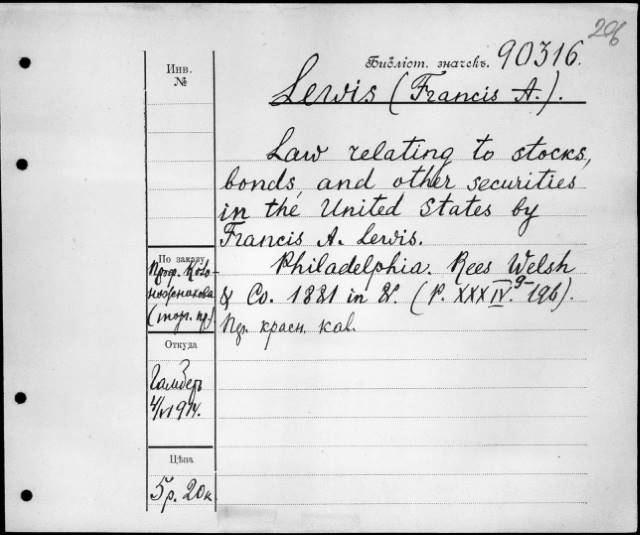 206
Библіот. значекъ. 90316.
Инв.
№
Lewis (Francis A.).
Law relating to stocks,
bonds, and other securities
in the United States by
Francis A. Lewis.
Philadelphia. Rees Welsh
& Co. 1881 in 8. (P. XXXIV. 9-196).
красн.
По заказу
Проф.
Откуда
1914.
Цѣна
5 р. 20 к